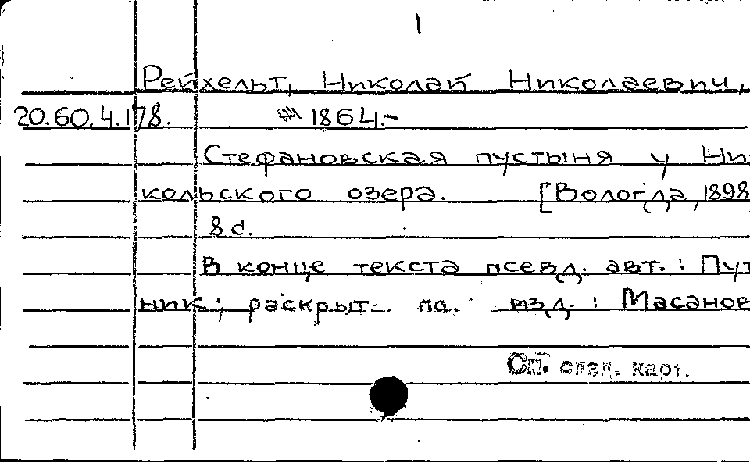 1
Рейхельт, Николай Николаевич,
20.60.4.178. 1864.-
Стефановская пустыня у Ни-
кольского озера. [Вологда, 1898
8 с.
В конце текста псевд. авт.: Пут
ник; раскрыт по изд.: Масанов
См. след. карт.